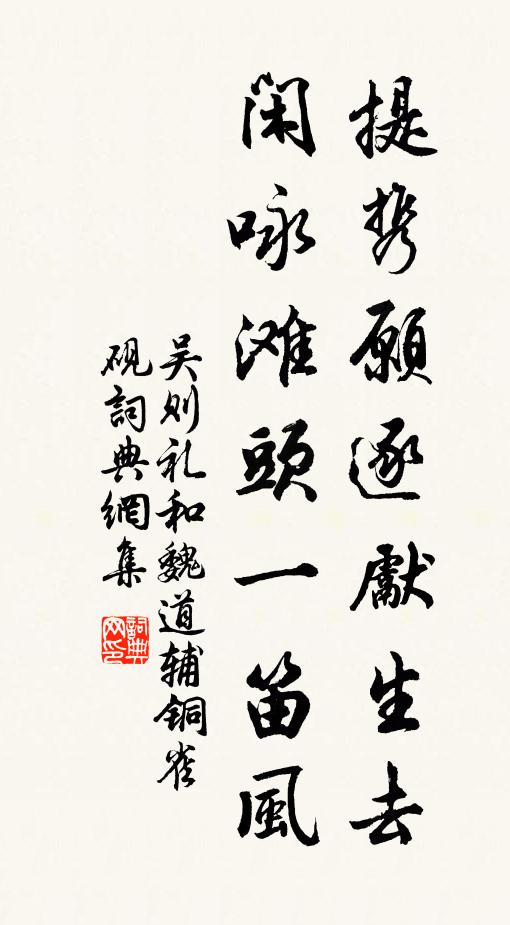 提携願逐獻生去
閑咏滩頭一笛風
吴则礼和魏道辅铜雀
砚詞典網集
詞典网印